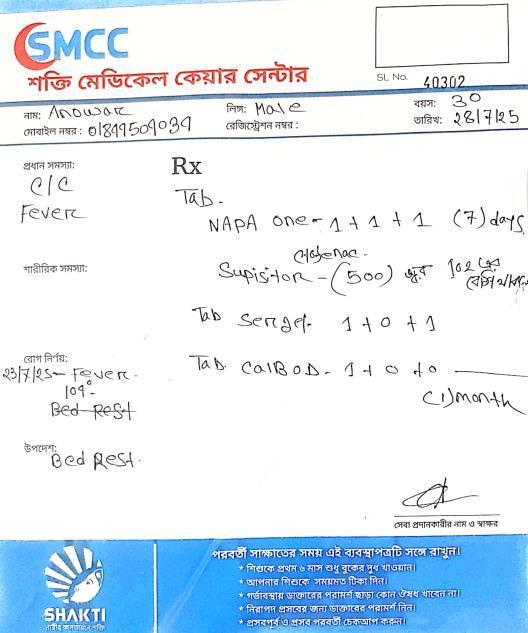 SMCC
শক্তি মেডিকেল কেয়ার সেন্টার
SL No. 40302
নাম: Anowar
লিঙ্গ: Male
বয়স: 30
মোবাইল নম্বর: 01849509039
রেজিস্ট্রেশন নম্বর:
তারিখ: 28/7/25
প্রধান সমস্যা:
C/C
Fever
Rx
Tab-
NAPA one- 1+1+1 (7) days
শারীরিক সমস্যা:
Supisitor - (500) জ্বর 102 এর
বেশি থাকলে
Tab Sergel- 1+0+1
রোগ নির্ণয়:
23/7/25- Fever-
104°-
Bed Rest
Tab CalBOD- 1+0+0
(1) month
উপদেশ:
Bed Rest-
সেবা প্রদানকারীর নাম ও স্বাক্ষর
SHAKTI
নারীর ক্ষমতায়নে শক্তি
পরবর্তী সাক্ষাতের সময় এই ব্যবস্থাপত্রটি সঙ্গে রাখুন।
* শিশুকে প্রথম ৬ মাস শুধু বুকের দুধ খাওয়ান।
* আপনার শিশুকে সময়মত টিকা দিন।
* গর্ভাবস্থায় ডাক্তারের পরামর্শ ছাড়া কোন ঔষধ খাবেন না।
* নিরাপদ প্রসবের জন্য ডাক্তারের পরামর্শ নিন।
* প্রসবপূর্ব ও প্রসব পরবর্তী চেকআপ করুন।